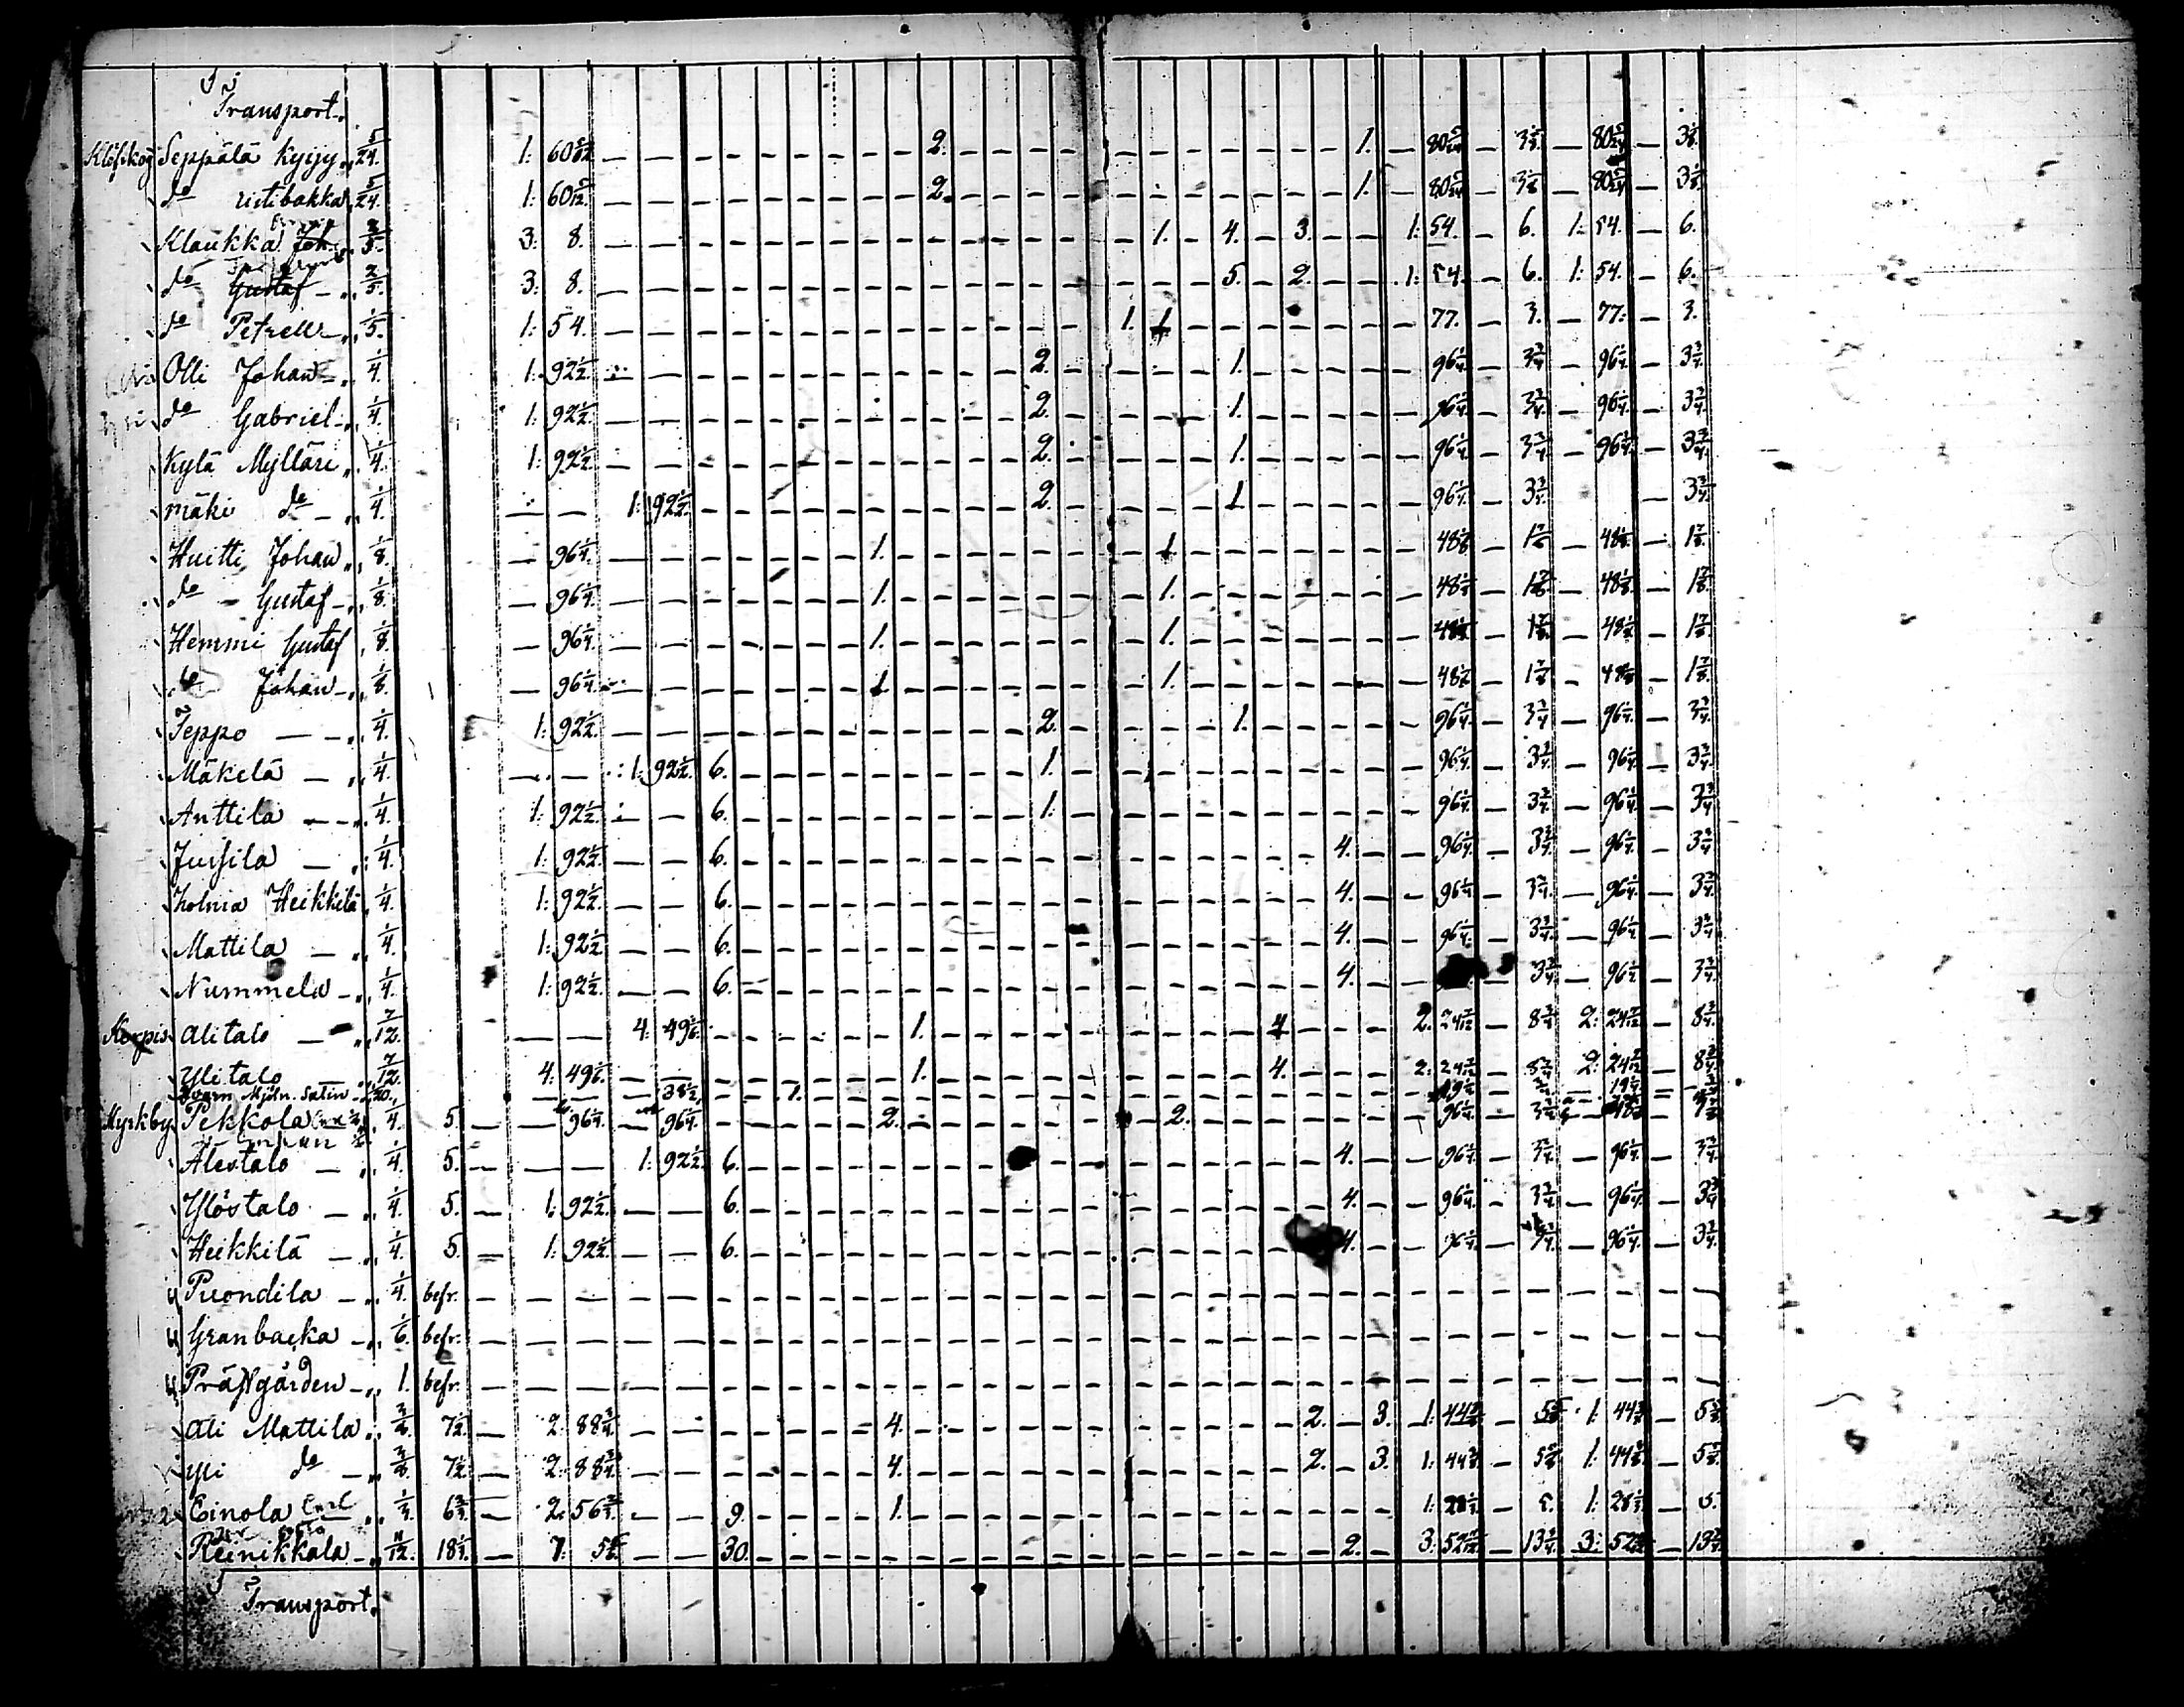 Transport.
Klöfskog Seppälä Kyijy „ 5/24. 1: 60 5/12 — — — — — — — — 2. — — — — — — — — — 1. — 80 5/24 — 3 1/8. — 80 5/24 — 3 1/8.
do ristibakka „ 5/24. 1: 60 5/12. — — — — — — — — 2. — — — — — — — — — 1. — 80 5/24 — 3 1/8 — 80 5/24 — 3 1/8.
Klaukka Joh. „ 2/5. 3: 8. — — — — — — — 1. — 4. — 3. — — 1: 54. — 6. 1: 54. — 6.
do Gustaf — „ 2/5. 3: 8. — — — — — — — 5. — 2. — — 1: 54. — 6. 1: 54. — 6.
do Petrell „ 1/5. 1: 54. — — — — — — 1. 1 — — — — — — 77. — 3. — 77. — 3.
Olli Johan — „ 1/4. 1: 92 1/2 — — — — — 2. — — — 1. — — — — 96 1/4 — 3 3/4 — 96 1/4. — 3 3/4.
do Gabriel — „ 1/4. 1: 92 1/2. — — — — — 2. — — — 1. — — — — 96 1/4 — 3 3/4 — 96 1/4. — 3 3/4.
Kylä Mylläri „ 1/4. 1: 92 1/2. — — — — — 2. — — — 1. — — — — 96 1/4 — 3 3/4 — 96 1/4 — 3 3/4.
mäki do — „ 1/4. — — 1: 92 1/2. — — — — 2. — — — 1 — — — — 96 1/4 — 3 3/4. — 3 3/4.
Huitti Johan „ 1/8. — 96 1/4. — — — — 1. — — — — 1. — — — — 48 1/8 — 1 7/8 — 48 1/8. — 1 7/8.
do — Gustaf — „ 1/8. — 96 1/4. — — — — 1. — — — — 1. — — — — 48 1/8 — 1 7/8. — 48 1/8. — 1 7/8.
Hemmi Gustaf „ 1/8. — 96 1/4. — — — — 1. — — — — 1. — — — — 48 1/8 — 1 7/8. — 48 1/8. — 1 7/8.
do Johan — „ 1/8. — 96 1/4. — — — — 1 — — — — 1. — — — — 48 1/8 — 1 7/8 — 48 1/8 — 1 7/8.
Teppo — — „ 1/4. 1: 92 1/2. — — — — — 2. — — — 1. — — — — 96 1/4 — 3 3/4 — 96 1/4. — 3 3/4.
Mäkelä — „ 1/4. — — 1: 92 1/2. 6. — — — — 1. — — — — — — 96 1/4. — 3 3/4. — 96 1/4. — 3 3/4.
Anttila — — „ 1/4. 1: 92 1/2. — — 6. — — — — 1. — — — — — — 96 1/4. — 3 3/4. — 96 1/4. — 3 3/4
Jussila — „ 1/4. 1: 92 1/2. — — 6. — — — — — — — — 4. — — 96 1/4. — 3 3/4. — 96 1/4. — 3 3/4
Heikkilä „ 1/4. 1: 92 1/2. — — 6. — — — — — — — — 4. — — 96 1/4 — 3 3/4. — 96 1/4. — 3 3/4.
Mattila — „ 1/4. 1: 92 1/2. — — 6. — — — — — — — — 4. — — 96 1/4. — 3 3/4. — 96 1/4. — 3 3/4.
Nummela — „ 1/4. 1: 92 1/2. — — 6. — — — — — — — — 4. — — 3 3/4 — 96 1/4. — 3 3/4.
Kerpis Alitalo — „ 7/12. — — 4: 49 1/6. — — — — 1. — — — — 4 — — — 2. 24 7/12 — 8 3/4. 2: 24 7/12 — 8 3/4.
Ylitalo „ 7/12. 4: 49 1/6. — — — — — 1. — — — — 4. — — — 2: 24 7/12 — 8 3/4 2: 24 7/12 — 8 3/4.
Qvarn Mjöln. — — 38 1/2. — — 1. — — — 19 1/4 — 3/4 — 19 1/4 — 3/4
Kyrkby Pekkola „ 1/4. 5. — — 96 1/4. — 96 1/4. — — — 2. — — — 2. — — — — 96 1/4. — 3 3/4
Alestalo — „ 1/4. 5. — — — 1: 92 1/2. 6. — — — — — — — 4. — — 96 1/4. — 3 3/4. — 96 1/4. — 3 3/4.
Ylöstalo — „ 1/4. 5. — 1: 92 1/2. — — 6. — — — — — — — 4. — — 96 1/4. — 3 3/4. — 96 1/4. — 3 3/4
Heikkilä — „ 1/4. 5. — 1: 92 1/2. — — 6. — — — — — — — 4. — — 96 1/4. — 3 3/4. — 96 1/4. — 3 3/4.
Puondila — „ 1/4. befr. — — — — — — — — — —
Granbacka — „ 1/6. befr. — — — — — — — — — —
Prästgården — „ 1. befr. — — — — — — — — — —
Ali Mattila „ 3/8. 7 1/2. — 2: 88 3/4. — — — — 4. — — — — 2. — 3. 1: 44 3/8 — 5 5/8 1: 44 3/8. — 5 5/8.
Yli do — „ 3/8. 7 1/2. — 2: 88 3/4. — — — — 4. — — — — 2. — 3. 1: 44 3/8 — 5 5/8 1: 44 3/8. — 5 5/8.
Einola „ 1/3. 6 2/3. — 2: 56 2/3. — — 9. — — — 1. — — — — — — 1: 28 1/3 — 5. 1: 28 1/3. — 5.
Reinikkala — „ 11/12. 18 1/3. — 7: 5 5/6. — — 30. — — — — — — — — 2. — 3: 52 11/12 — 13 3/4. 3: 52 11/12 — 13 3/4.
Transport.